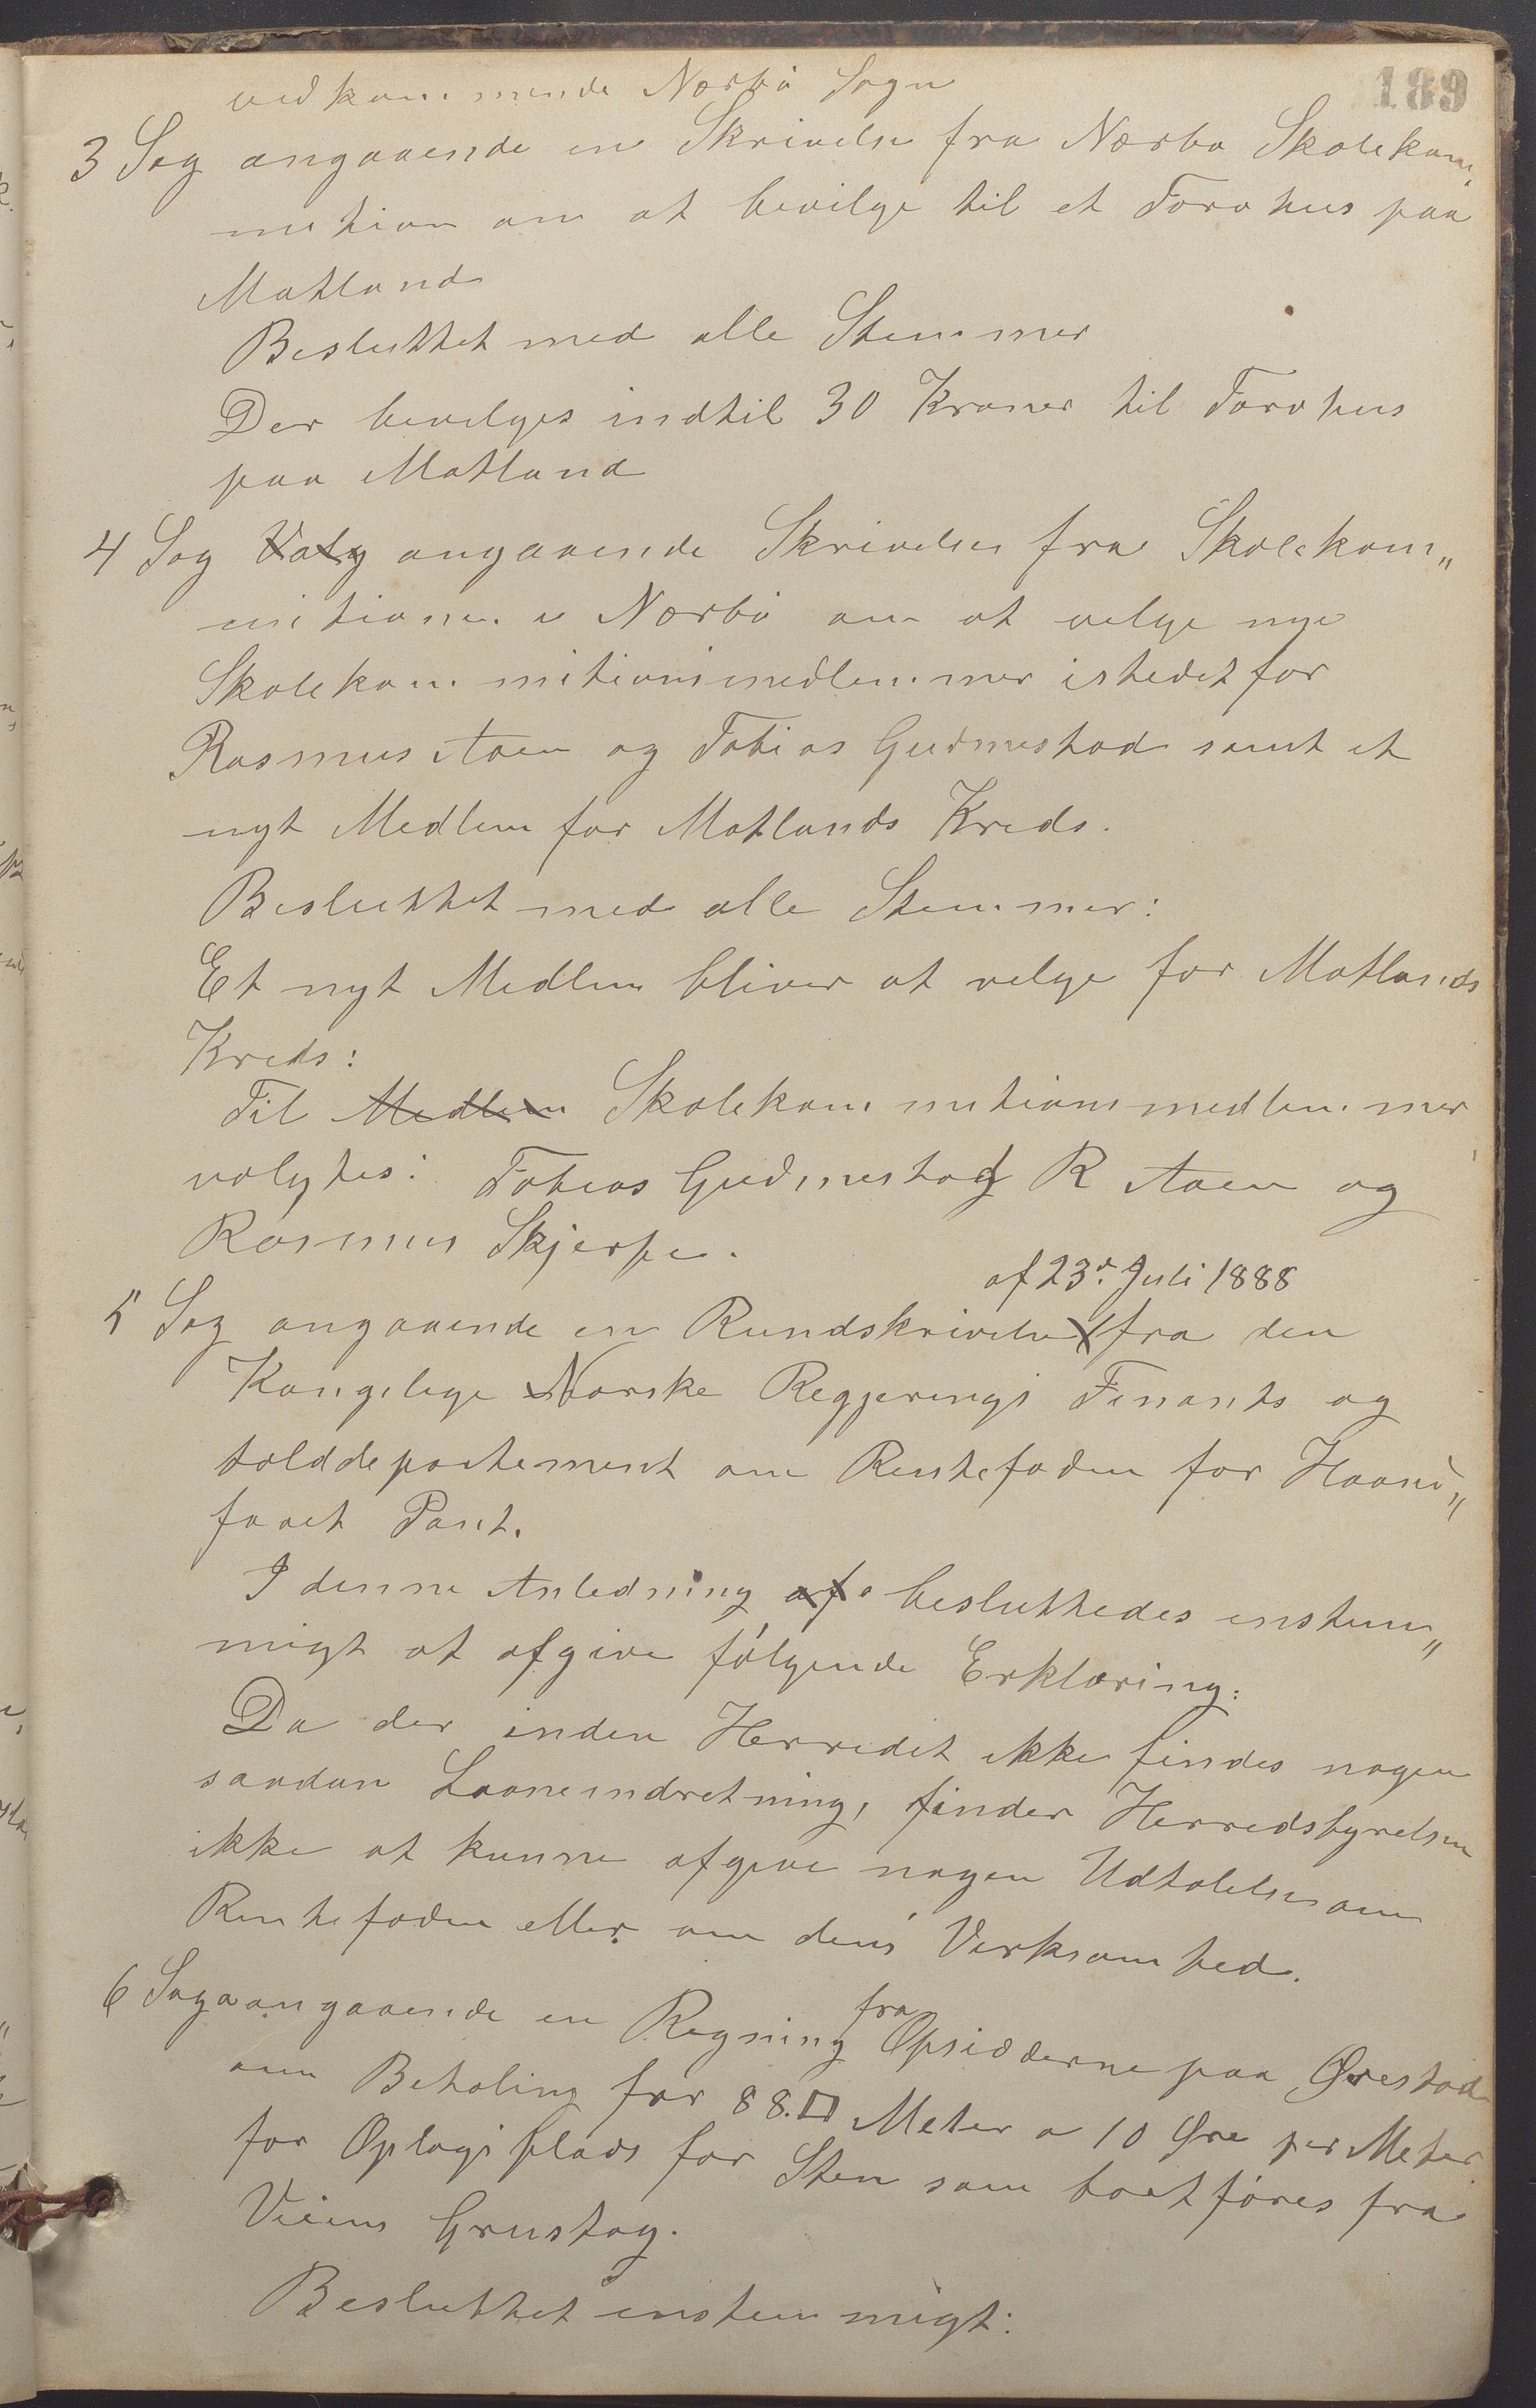 189
vedkommende Nærbø Sogn
3 Sag angaaende en Skrivelse fra Nærbø Skolekom„
mition om at bevilge til et Torvhus paa
Motland
Besluttet med alle Stemmer
Der bevelges indtil 30 Kroner til Torvhus
paa Motland
4 Sag Valg angaaende Skrivelse fra Skolekom„
mitionen i Nærbø om at velge nye
Skolekommitionsmedlemmer istedet for
Rasmus Aaen og Tobias Gudmestad samt et
nyt Medlem for Motlands Kreds.
Besluttet med alle Stemmer:
Et nyt Medlem bliver at velge for Motlands
Kreds:
Til Medlem Skolekommitionsmedlemmer
valgtes: Tobias Gudmestad R Aaen og
Rasmus Skjerpe.
af 23d. Juli 1888
5 Sag angaaende en Rundskrivelse fra den
Kongelige Norske Regjerings Finants og
tolddepartement om Rentefoden for Haand„
faaet Pant.
I denne Anledning af besluttedes enstem„
migt at afgive følgende Erklæring:
Da der inden Herredet ikke findes nogen
saadan Laaneindretning, finder Herredsbyrelsen
ikke at kunne afgive nogen Udtalelse om
Rentefoden eller om dens Verksomhed.
6 Sag angaaende en Regning fra Opsidderne paa Ørestad
om Betaling for 88.□ Meter a 10 Øre per Meter
for Oplagsplads for Sten som bortføres fra
Veiens Grustag.
Besluttet enstemmigt: